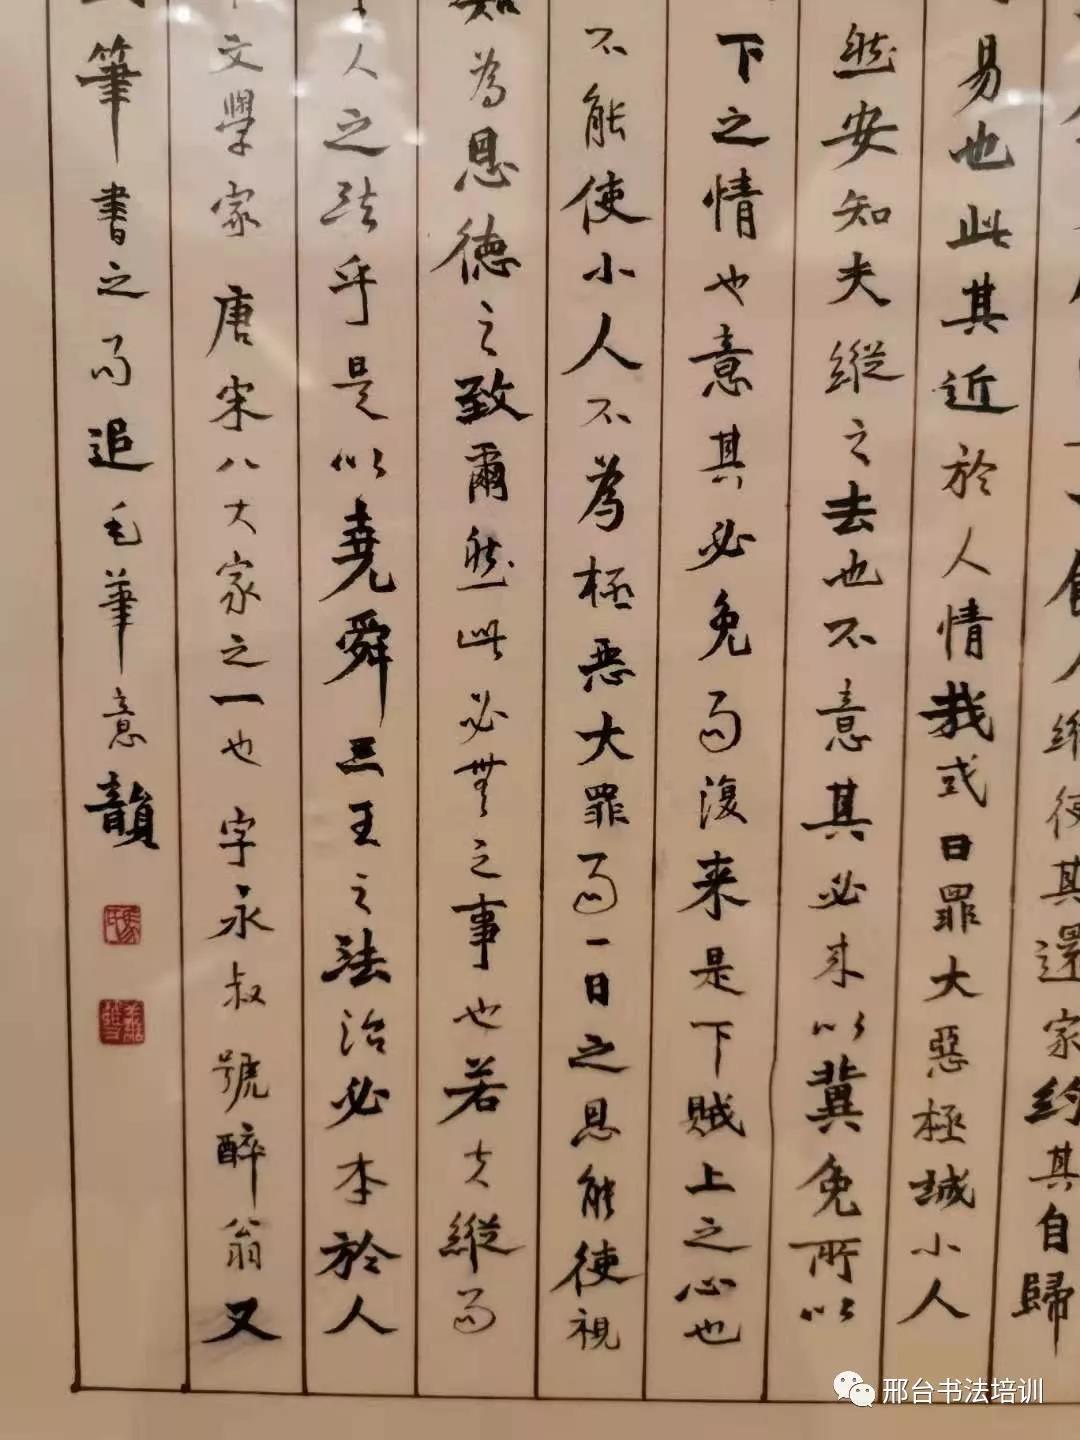 食人縱使其還家約其自歸
易也此其近於人情哉或曰罪大惡極誠小人
然安知夫縱之去也不意其必来以冀免所以
下之情也意其必免而復来是下賊上之心也
不能使小人不為極恶大罪而一日之恩能使視
為恩德之致爾然此必無之事也若夫縱而
人之法乎是以堯舜三王之法治必本於人
文學家唐宋八大家之一也字永叔號醉翁又
筆書之而追毛筆意韻
邢台书法培训